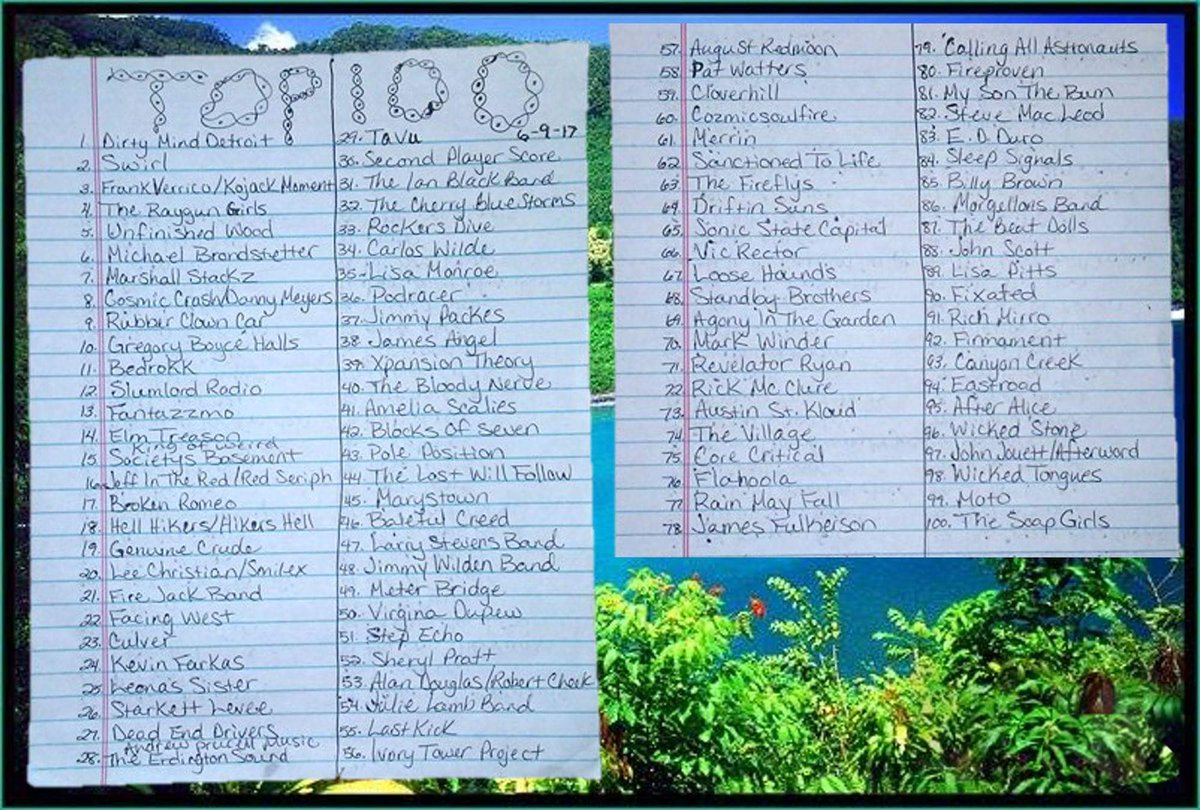 TOP 100
6-9-17
1. Dirty Mind Detroit
2. Swirl
3. Frank Verrico/Kojack Moment
4. The Raygun Girls
5. Unfinished Wood
6. Michael Brandstetter
7. Marshall Stackz
8. Cosmic Crash/Danny Meyers
9. Rubber Clown Car
10. Gregory Boyce Halls
11. Bedrokk
12. Slumlord Radio
13. Fantazzmo
14. Elm Treason
King of Weird
15. Societys Basement
16. Jeff In The Red/Red Seriph
17. Broken Romeo
18. Hell Hikers/Hikers Hell
19. Genuine Crude
20. Lee Christian/Smilex
21. Fire Jack Band
22. Facing West
23. Culver
24. Kevin Farkas
25. Leona's Sister
26. Starkett Levee
27. Dead End Drivers
Andrew Music
28. The Erdington Sound
29. Tavu
30. Second Player Score
31. The Ian Black Band
32. The Cherry Blue Storms
33. Rockers Dive
34. Carlos Wilde
35. Lisa Monroe
36. Podracer
37. Jimmy Packes
38. James Angel
39. Xpansion Theory
40. The Bloody Nerve
41. Amelia Scalies
42. Blocks Of Seven
43. Pole Position
44. The Lost Will Follow
45. Marystown
46. Baleful Creed
47. Larry Stevens Band
48. Jimmy Wilden Band
49. Meter Bridge
50. Virgina Dupew
51. Step Echo
52. Sheryl Pratt
53. Alan Douglas/Robert Cheek
54. Julie Lamb Band
55. Last Kick
56. Ivory Tower Project
57. August Redmoon
58. Pat Watters
59. Cloverhill
60. Cozmicsoulfire
61. Merrin
62. Sanctioned To Life
63. The Fireflys
64. Driftin Suns
65. Sonic State Capital
66. Vic Rector
67. Loose Hounds
68. Standby Brothers
69. Agony In The Garden
70. Mark Winder
71. Revelator Ryan
72. Rick Mc Clure
73. Austin St. Kloud
74. The Village
75. Core Critical
76. Flahoola
77. Rain May Fall
78. James Fulkerson
79. Calling All Astronauts
80. Fireproven
81. My Son The Bum
82. Steve Mac Leod
83. E.D. Duro
84. Sleep Signals
85. Billy Brown
86. Morgellons Band
87. The Beat Dolls
88. John Scott
89. Lisa Pitts
90. Fixated
91. Rich Mirro
92. Firmament
93. Canyon Creek
94. Eastroad
95. After Alice
96. Wicked Stone
97. John Jouett/Afterword
98. Wicked Tongues
99. Moto
100. The Soap Girls